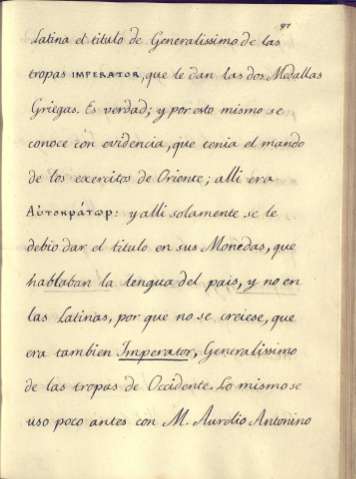 97
Latina el titulo de Generalissimo de las
tropas IMPERATOR, que le dan las dos Medallas
Griegas. Es verdad; y por esto mismo se
conoce con evidencia, que tenia el mando
de los exercitos de Oriente; alli era
Αὐτοκράτωρ: y alli solamente se le
debio dar el titulo en sus Monedas, que
hablaban la lengua del pais, y no en
las Latinas, por que no se creiese, que
era tambien Imperator, Generalissimo
de las tropas de Occidente. Lo mismo se
uso poco antes con M. Aurelio Antonino